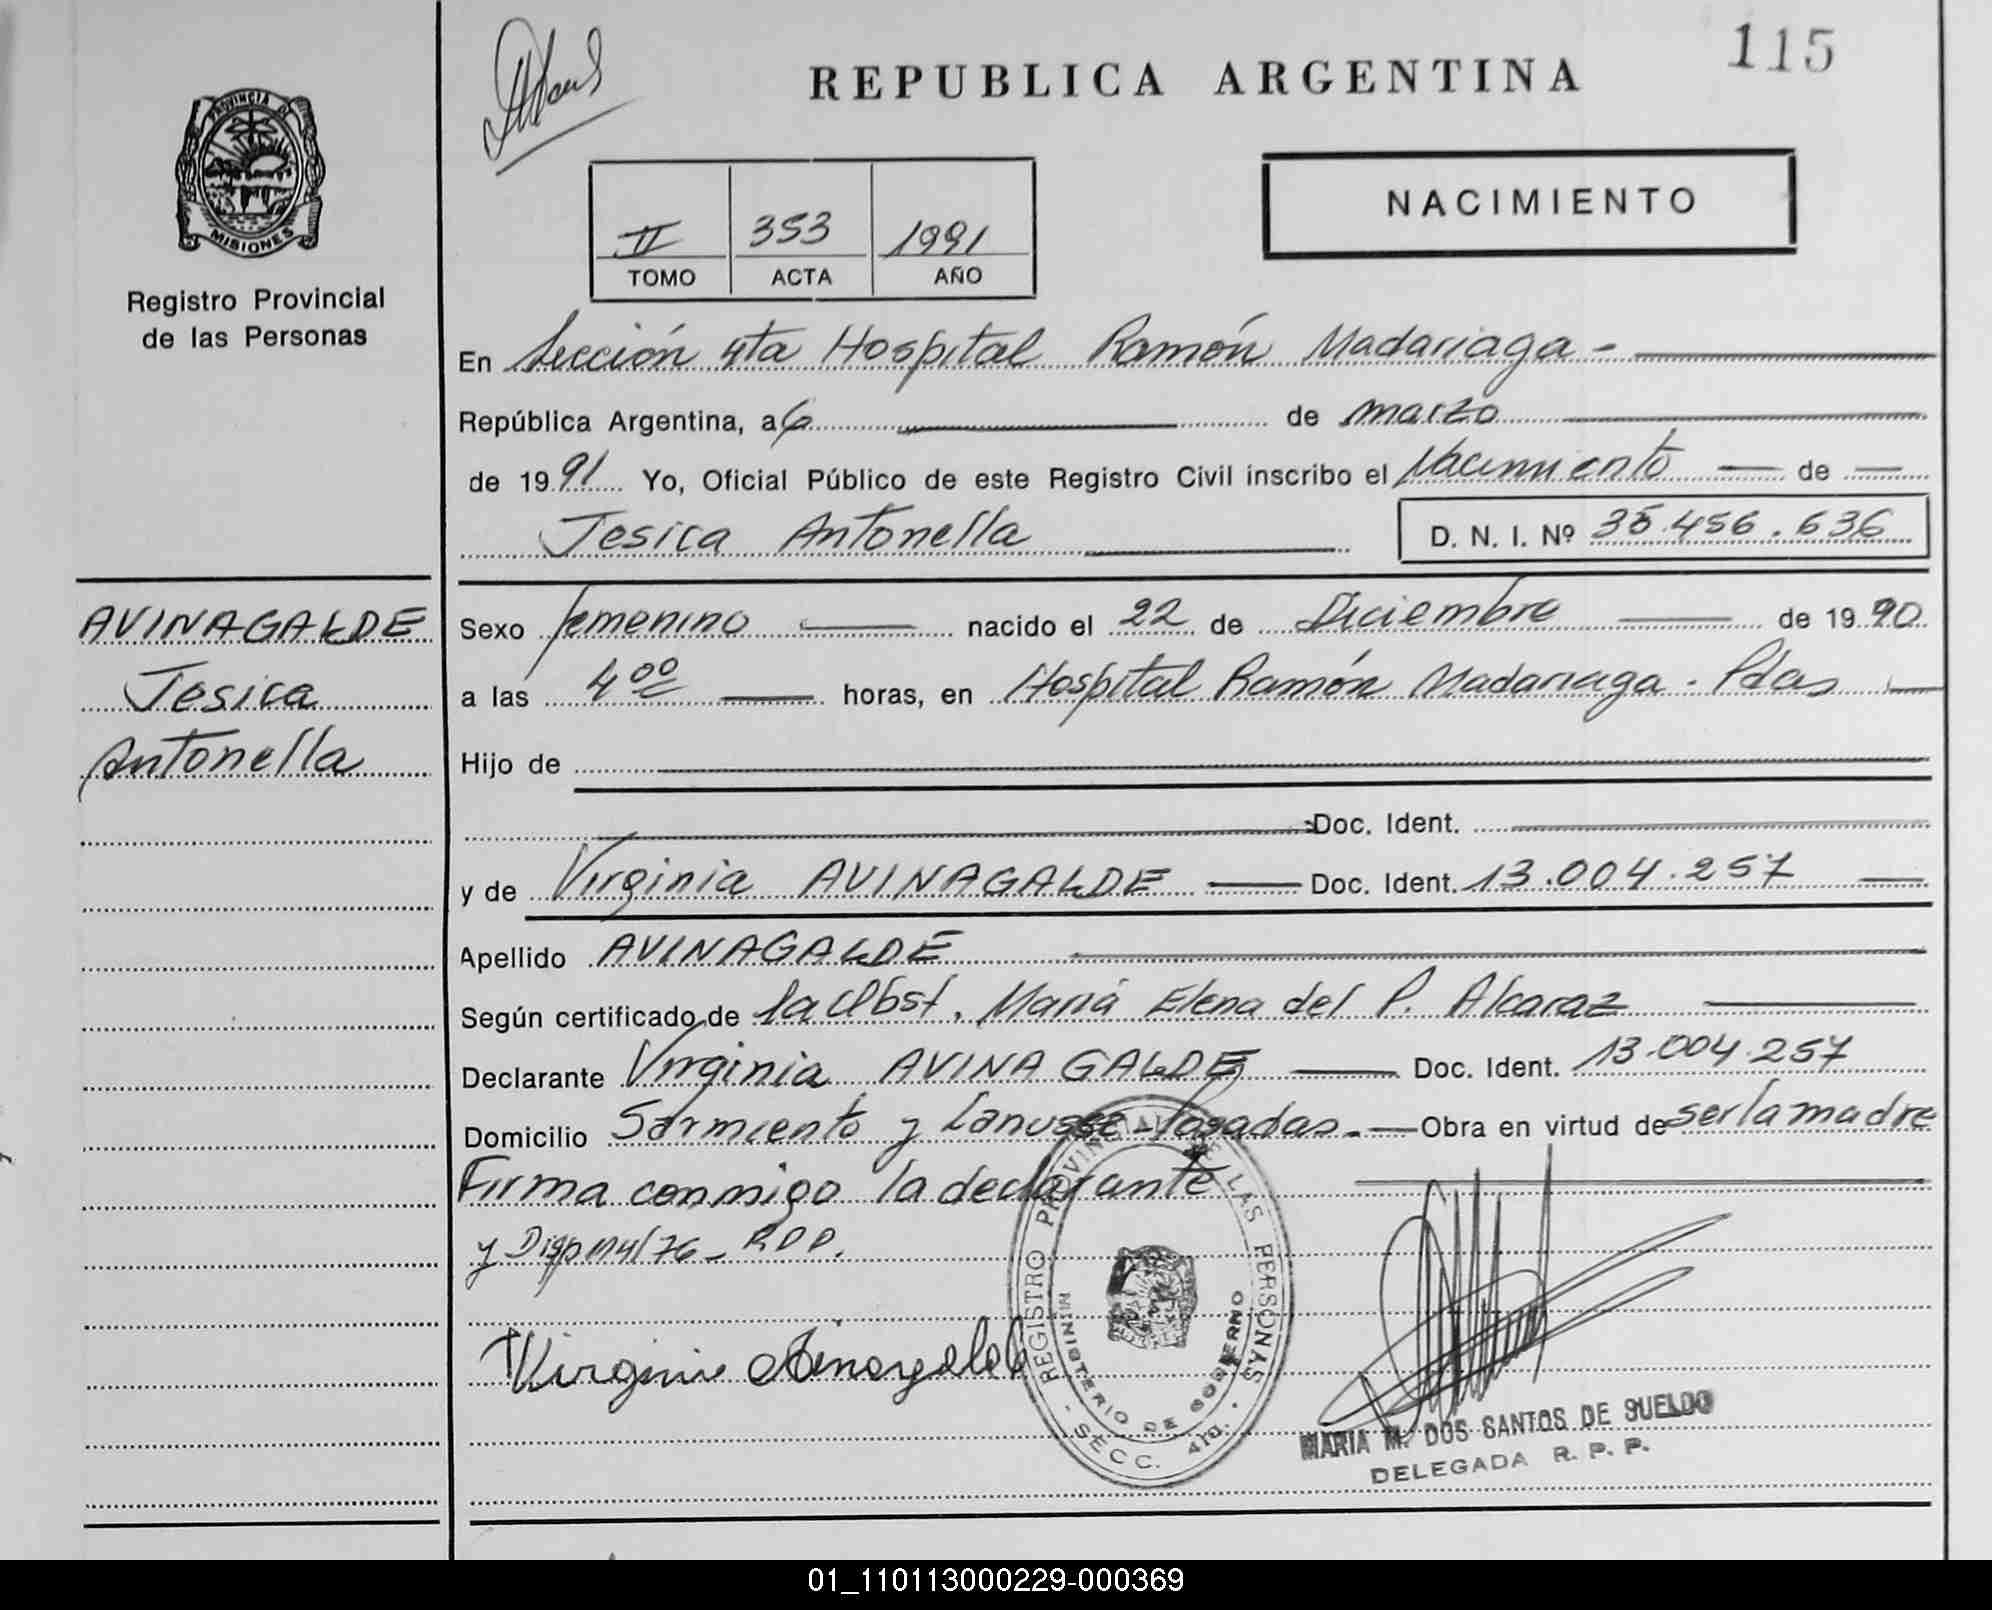 115
REPUBLICA ARGENTINA
NACIMIENTO
II 353 1991
TOMO ACTA AÑO
PROVINCIA DE
MISIONES
Registro Provincial
de las Personas
En Sección 4ta Hospital Ramón Madariaga -
República Argentina, a 6 de marzo
de 1991 Yo, Oficial Público de este Registro Civil inscribo el Nacimiento de
Jesica Antonella D. N. I. Nº 35.456.636
AVINAGALDE
Jesica
Antonella
Sexo femenino nacido el 22 de Diciembre de 1990
a las 4 00 horas, en Hospital Ramón Madariaga - Pdas
Hijo de
Doc. Ident.
y de Virginia AVINAGALDE Doc. Ident. 13.004.257
Apellido AVINAGALDE
Según certificado de la Obst. María Elena del P. Alcaraz
Declarante Virginia AVINAGALDE Doc. Ident. 13.004.257
Domicilio Sarmiento y Lanusse - Posadas. Obra en virtud de ser la madre
Firma conmigo la declarante
y Disp 114/76 - R.P.P.
Virginia Avinagalde
REGISTRO PROVINCIAL DE LAS PERSONAS
MINISTERIO DE GOBIERNO
- SECC. 4ta. -
MARIA M. DOS SANTOS DE SUELDO
DELEGADA R. P. P.
01_110113000229-000369